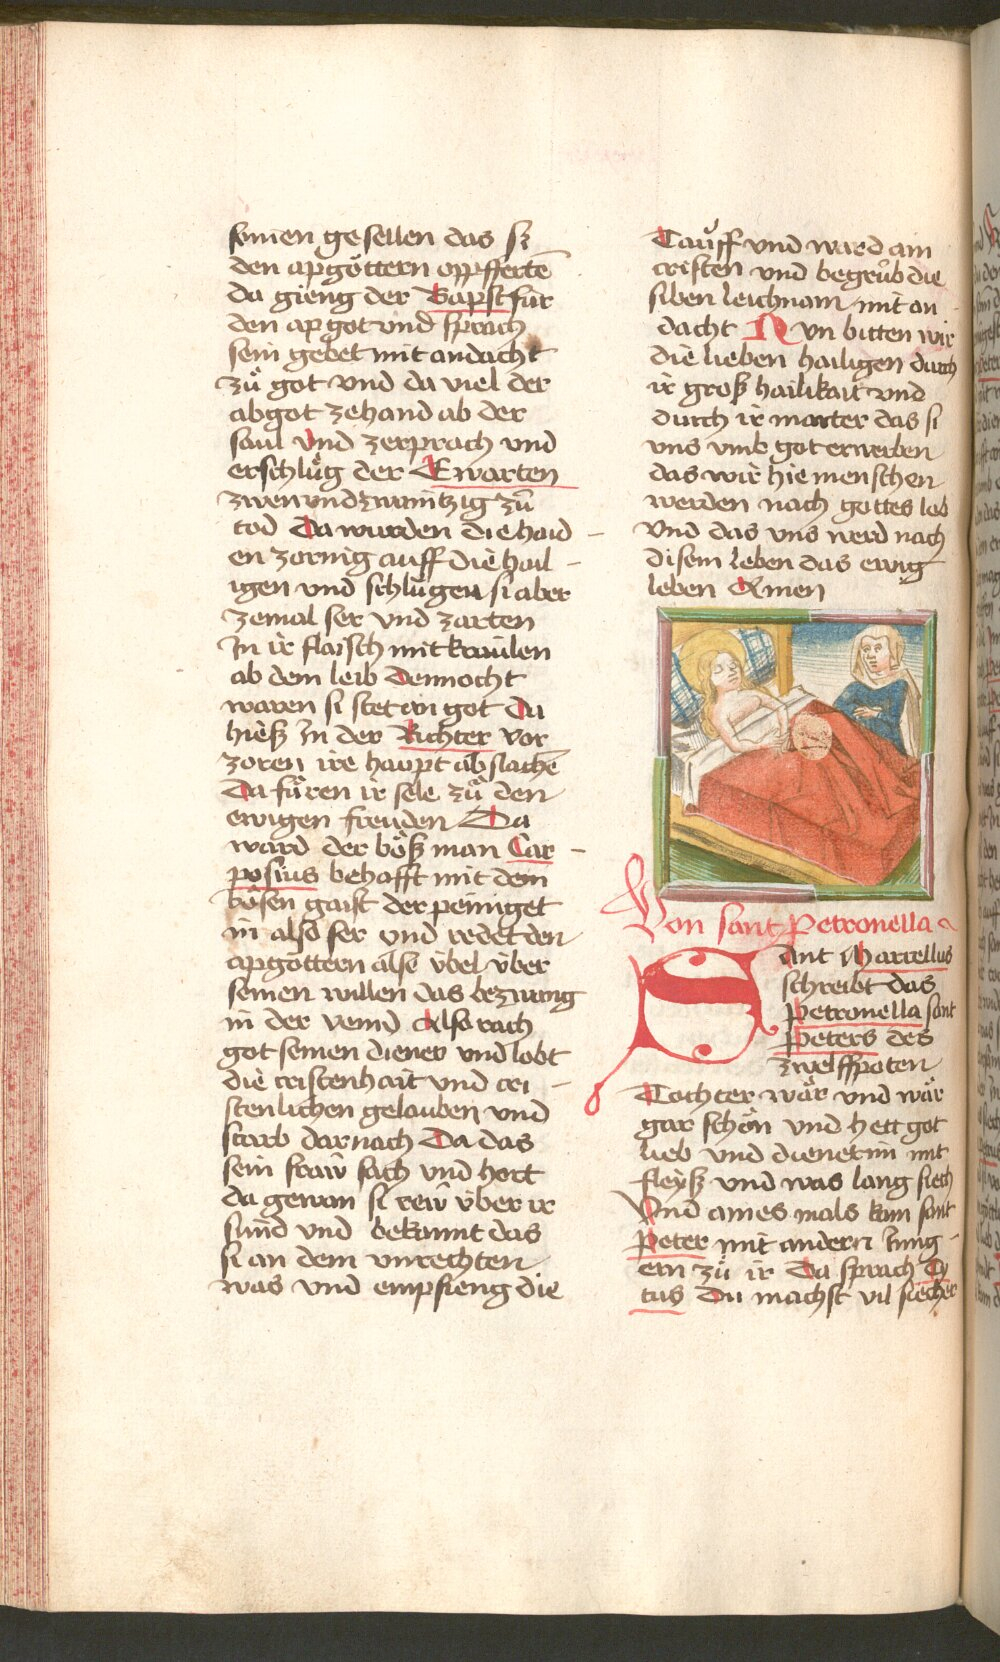 seinen gesellen das si
den apgöttern oppffertē
da gieng der Bapst für
den apgot vnd sprach
sein gebet mit andacht
zů got vnd da viel der
abgot zehand ab der
saul vnd zerprach vnd
erschlůg der Ewarten
zwen vnd zwaintzig zů
tod Da wurden die haid-
en zornig auff die hail-
igen vnd schlůgen si aber
zemal ser vnd zarten
In ir flaisch mit kräulen
ab dem leib Dennocht
waren si stet an got Da
hieß In der Richter vor
zoren ire haupt abslachē
Da fůren ir sele zů den
ewigen freuden Da
ward der böß man Car-
posius behafft mit dem
bösen gaist der peiniget
in also ser vnd redet den
apgöttern alse übel über
seinen willen das bezwang
in der veind Also rach
got seinen diener vnd lobt
die cristenhait vnd cri-
stenlichen gelauben vnd
starb darnach Da das
sein fraw sach vnd hort
da gewan si rew über ir
sünd vnd bekannt das
si an dem vnrechten
was vnd empfieng die
Tauff vnd ward ain
cristen vnd begrůb die
siben leichnam mit an-
dacht Nun bitten wir
die lieben hailigen durch
ir groß hailikait vnd
durch ir marter das si
vns vmb got erwerben
das wir hie menschen
werden nach gottes lob
Vnd das vns werd nach
disem leben das ewig
leben Amen
Von sant Petronella
Sant Marcellus
schreibt das
Petronella sant
Peters des
zwelffpoten
Tochter wär vnd wär
gar schön vnd hett got
lieb vnd dienet im mit
fleyß vnd was lang siech
Vnd aines mals kam sant
Peter mit andern iung-
ern zů ir Da sprach Ty
tus Du machst vil siecher